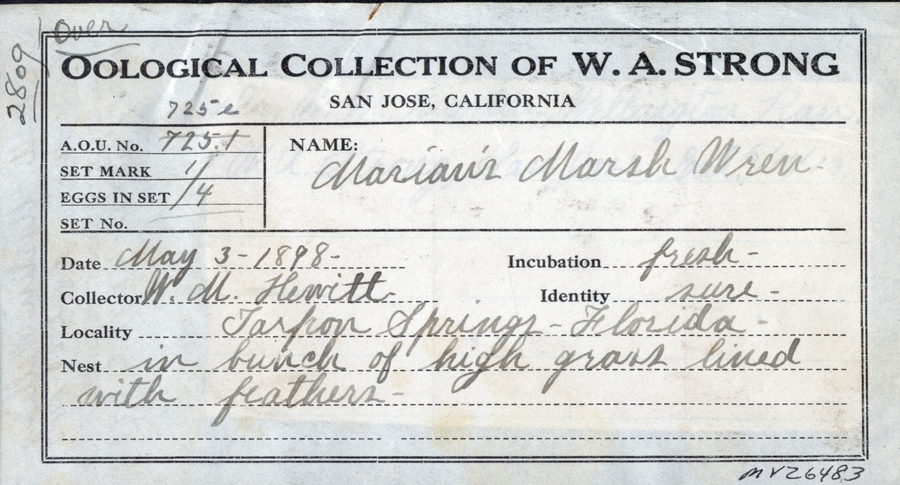 Over
2809
OOLOGICAL COLLECTION OF W. A. STRONG
SAN JOSE, CALIFORNIA
725e
A.O.U. No. 725.1
SET MARK 1/
EGGS IN SET /4
SET No.
NAME:
Marian's Marsh Wren
Date May 3-1898-
Incubation fresh-
Collector W. M. Hewitt
Identity sure-
Locality Tarpon Springs-Florida-
Nest in bunch of high grass lined
with feathers-
MV26483